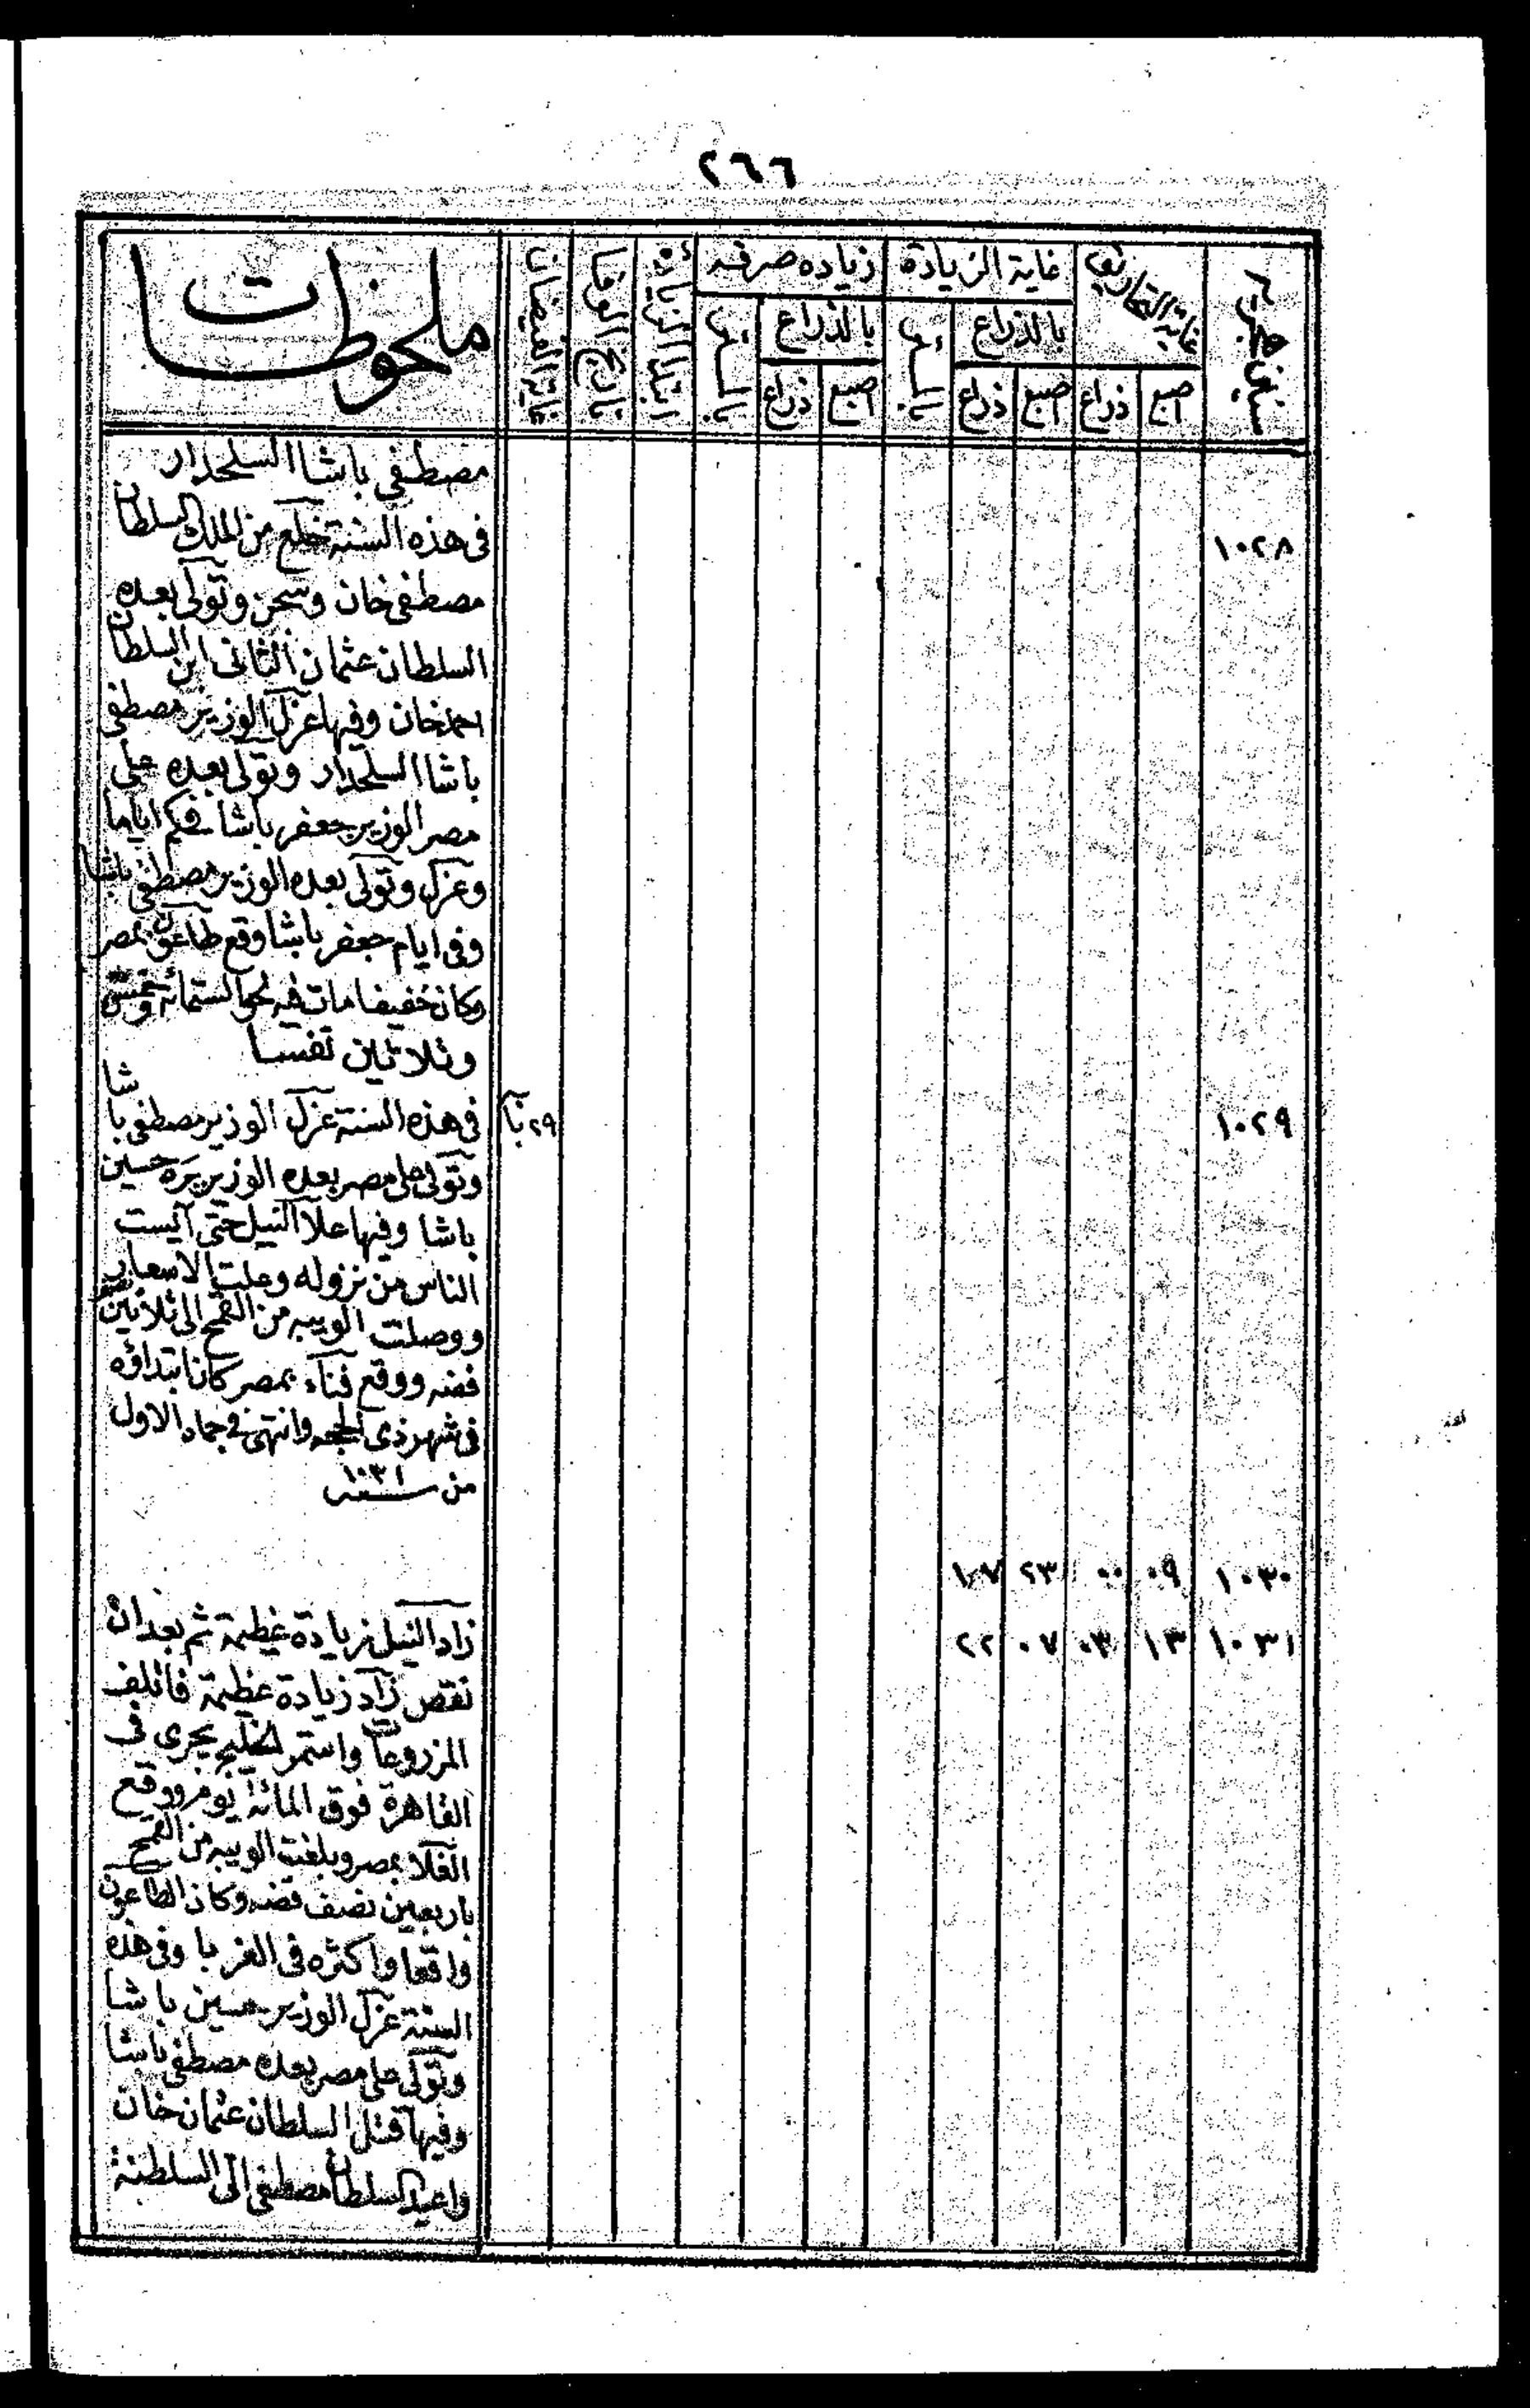 ٢٦٦
سنين هجرية
غاية التحاريق
غاية الزيادة
زياده صرفه
ابتداء الزياده
تاريخ الوفا
غاية الفيضان
ملحوظات
بالذراع
بالذراع
اصبع
ذراع
اصبع
ذراع
اصبع
ذراع
مصطفى باشا السلحدار
١٠٢٨
فى هذه السنة خلع من الملك السلطان
مصطفى خان وسجن وتولى بعده
السلطان عثمان الثانى ابن السلطان
احمد خان وفيها عزل الوزير مصطفى
باشا السلحدار وتولى بعده على
مصر الوزير جعفر باشا فحكم اياما
وعزل وتولى بعده الوزير مصطفى باشا
وفى ايام جعفر باشا وقع طاعون بمصر
وكان خفيفا مات فيه نحو الستمائة وخمس
وثلاثين نفسا
١٠٢٩
٢٩ بآ
فى هذه السنة عزل الوزير مصطفى باشا
وتولى على مصر بعده الوزير بره حسين
باشا وفيها علا النيل حتى آيست
الناس من نزوله وعلت الاسعار
ووصلت الويبه من القمح الى ثلاثين نصف
فضه ووقع فناء بمصر كان ابتداؤه
فى شهر ذى الحجه وانتهى فى جماد الاول
من سنة ١٠٣١
١٠٣٠ ٠٩ ٠٠ ٢٣ ١٧
١٠٣١ ١٣ ٠٣ ٠٧ ٢٢
زاد النيل زيادة عظيمة ثم بعد ان
نقص زاد زيادة عظيمة فاتلف
المزروعات واستمر الخليج يجرى فى
القاهرة فوق المائة يوم ووقع
الغلا بمصر وبلغت الويبه من القمح
باربعين نصف فضه وكان الطاعون
واقعا واكثره فى الغربا وفى هذه
السنة عزل الوزير حسين باشا
وتولى على مصر بعده مصطفى باشا
وفيها قتل السلطان عثمان خان
واعيد السلطان مصطفى الى السلطنة